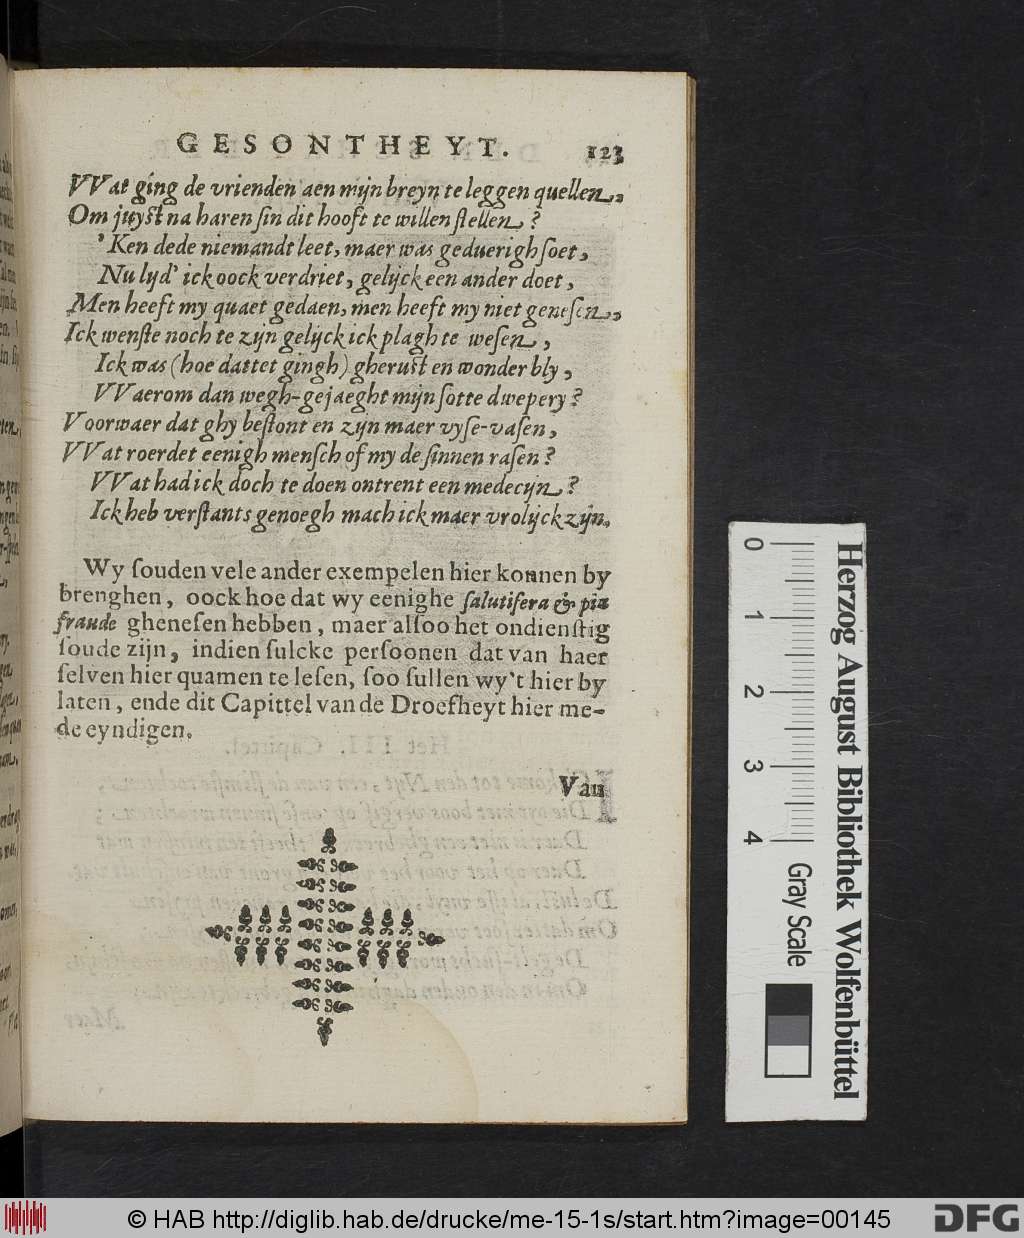 GESONTHEYT. 123
VVat ging de vrienden aen mijn breyn te leggen quellen,
Om juyſt na haren ſin dit hooft te willen ſtellen?
'Ken dede niemandt leet, maer was geduerigh ſoet,
Nu lyd' ick oock verdriet, gelijck een ander doet,
Men heeft my quaet gedaen, men heeft my niet geneſen,
Ick wenſte noch te zijn gelijck ick plagh te weſen,
Ick was (hoe dattet gingh) gheruſt en wonder bly,
VVaerom dan wegh-gejaeght mijn ſotte dwepery?
Voorwaer dat ghy beſtont en zijn maer vyſe-vaſen,
VVat roerdet eenigh menſch of my de ſinnen raſen?
VVat had ick doch te doen ontrent een medecijn?
Ick heb verſtants genoegh mach ick maer vrolijck zijn.
Wy ſouden vele ander exempelen hier konnen by
brenghen, oock hoe dat wy eenighe ſalutifera & pia
fraude gheneſen hebben, maer alſoo het ondienſtig
ſoude zijn, indien ſulcke perſoonen dat van haer
ſelven hier quamen te leſen, ſoo ſullen wy't hier by
laten, ende dit Capittel van de Droefheyt hier me-
de eyndigen.
Van
0 1 2 3 4
Gray Scale
Herzog August Bibliothek Wolfenbüttel
© HAB http://diglib.hab.de/drucke/me-15-1s/start.htm?image=00145
DFG